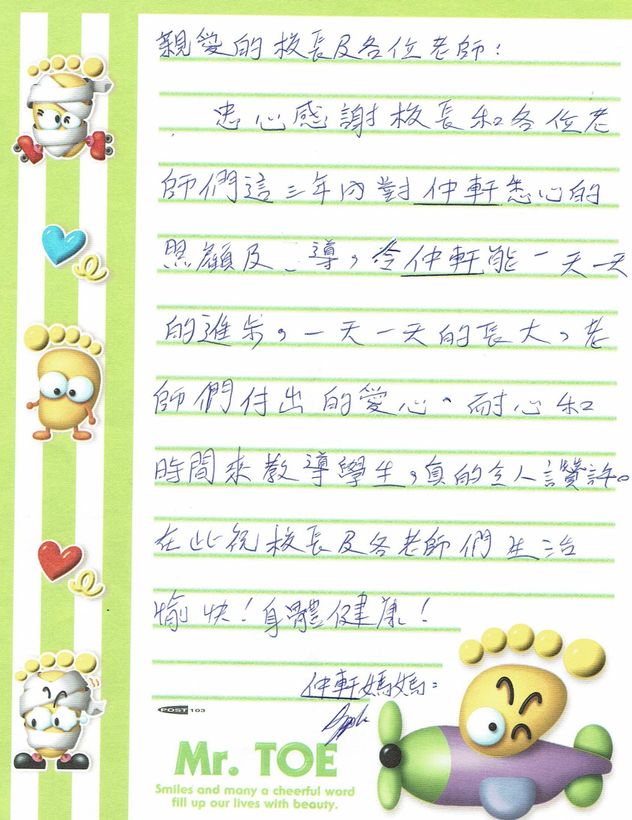 親愛的校長及各位老師：
忠心感謝校長和各位老
師們這三年內對仲軒悉心的
照顧及導，令仲軒能一天一天
的進步，一天一天的長大，老
師們付出的愛心、耐心和
時間來教導學生，真的令人讚許。
在此祝校長及各老師們生活
愉快！身體健康！
仲軒媽媽：
POST 103
Mr. TOE
Smiles and many a cheerful word
fill up our lives with beauty.